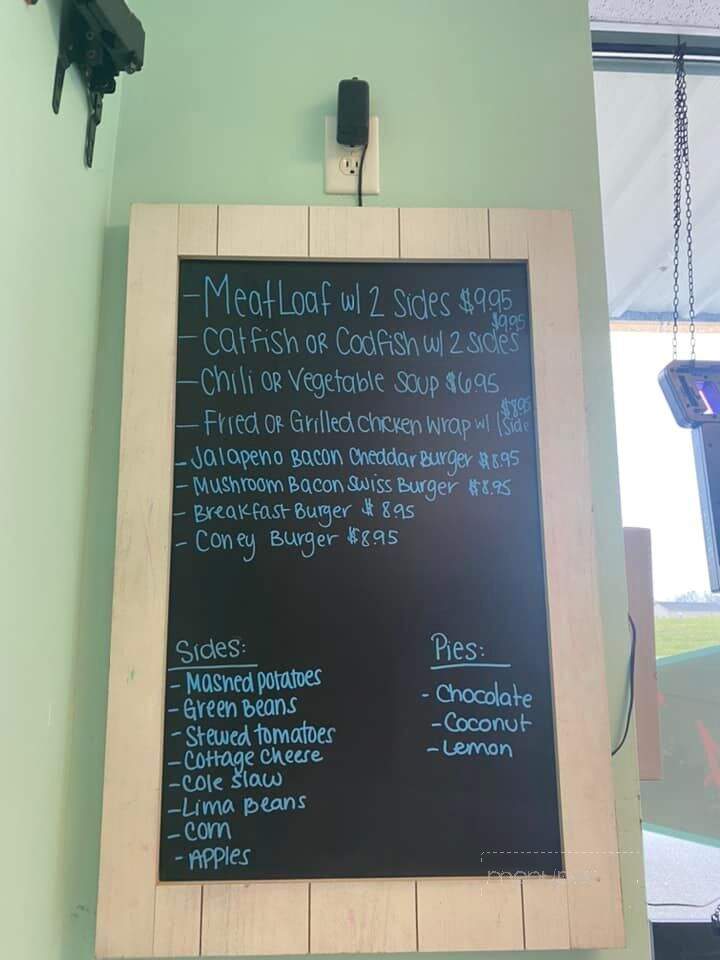 - Meatloaf w/ 2 sides $9.95
- Catfish or Codfish w/ 2 sides $9.95
- Chili or Vegetable Soup $6.95
- Fried or Grilled chicken wrap w/ 1 side $8.95
- Jalapeno Bacon Cheddar Burger $8.95
- Mushroom Bacon Swiss Burger $8.95
- Breakfast Burger $8.95
- Coney Burger $8.95
Sides:
- Mashed potatoes
- Green Beans
- Stewed tomatoes
- Cottage Cheese
- Cole Slaw
- Lima Beans
- Corn
- Apples
Pies:
- Chocolate
- Coconut
- Lemon